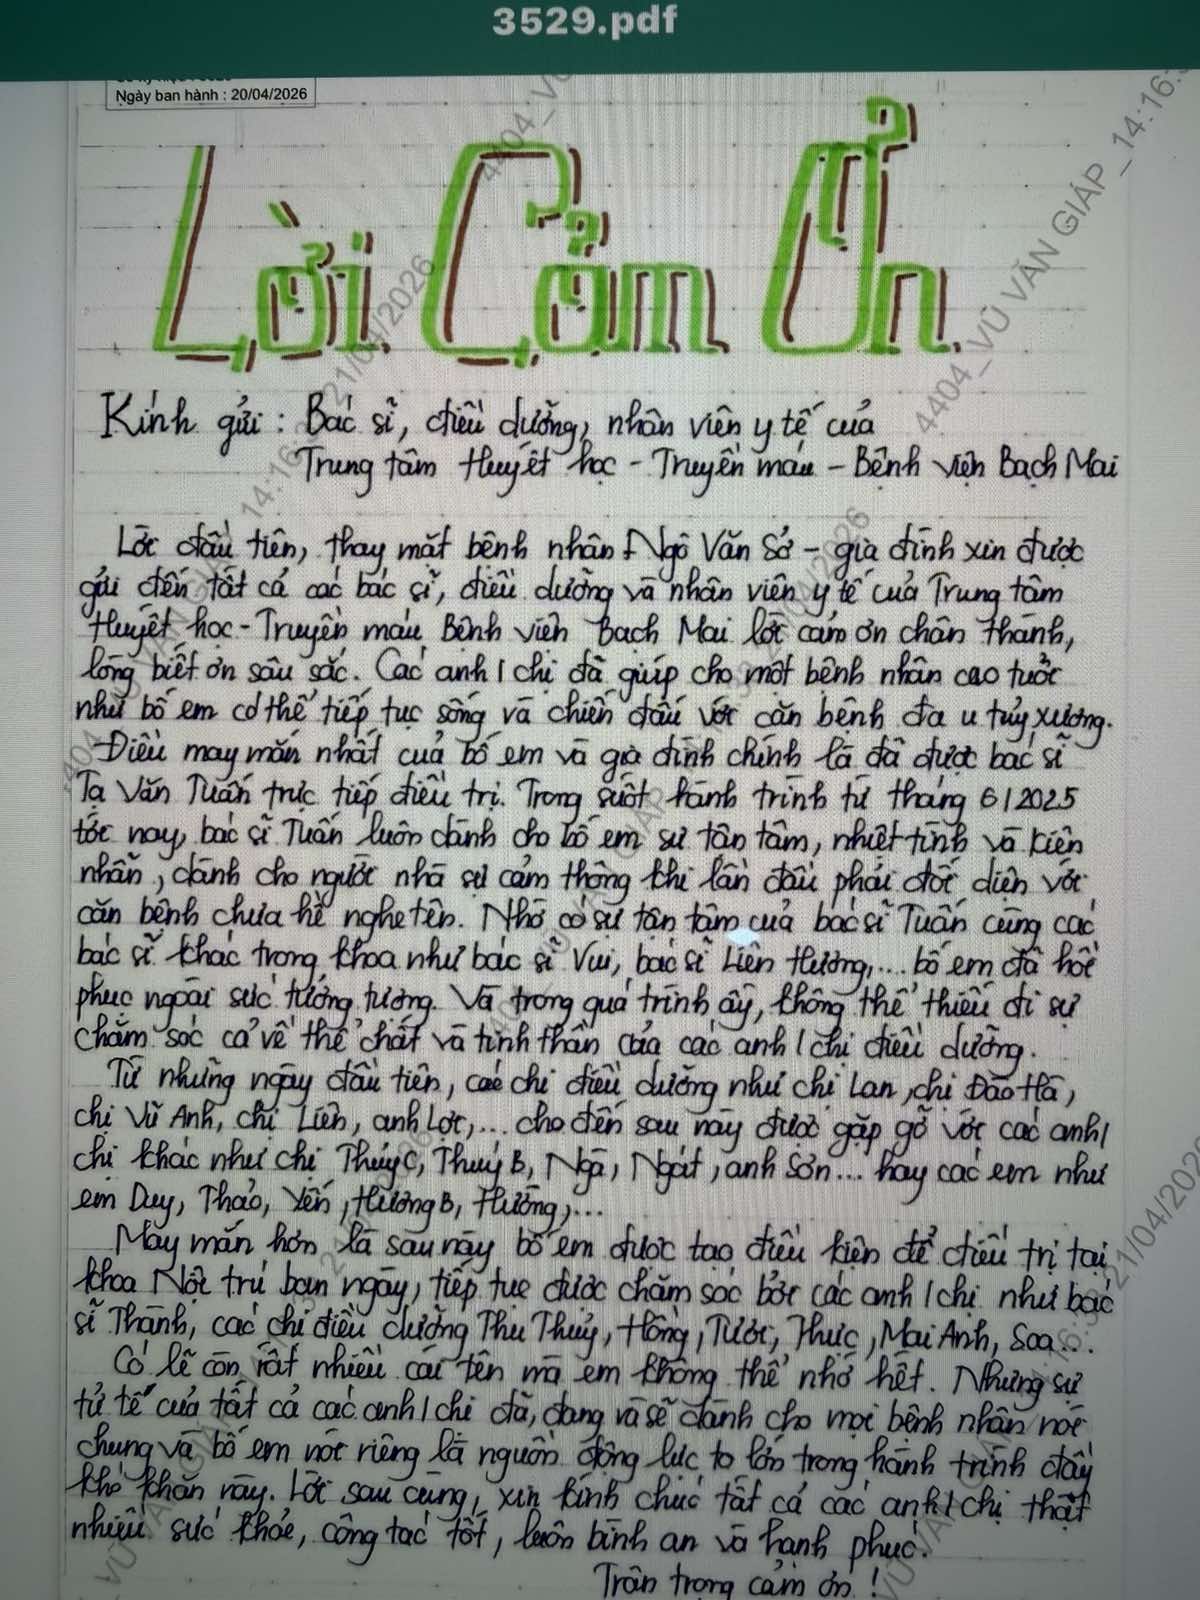 3529.pdf
Ngày ban hành : 20/04/2026
Lời Cảm Ơn
Kính gửi : Bác sĩ, điều dưỡng, nhân viên y tế của
Trung tâm Huyết học - Truyền máu - Bệnh viện Bạch Mai
Lời đầu tiên, thay mặt bệnh nhân Ngô Văn Sở - gia đình xin được
gửi đến tất cả các bác sĩ, điều dưỡng và nhân viên y tế của Trung tâm
Huyết học - Truyền máu Bệnh viện Bạch Mai lời cảm ơn chân thành,
lòng biết ơn sâu sắc. Các anh/chị đã giúp cho một bệnh nhân cao tuổi
như bố em có thể tiếp tục sống và chiến đấu với căn bệnh đa u tủy xương.
Điều may mắn nhất của bố em và gia đình chính là đã được bác sĩ
Tạ Văn Tuấn trực tiếp điều trị. Trong suốt hành trình từ tháng 6/2025
tới nay, bác sĩ Tuấn luôn dành cho bố em sự tận tâm, nhiệt tình và kiên
nhẫn, dành cho người nhà sự cảm thông khi lần đầu phải đối diện với
căn bệnh chưa hề nghe tên. Nhờ có sự tận tâm của bác sĩ Tuấn cùng các
bác sĩ khác trong khoa như bác sĩ Vui, bác sĩ Liên Hương,... bố em đã hồi
phục ngoài sức tưởng tượng. Và trong quá trình ấy, không thể thiếu đi sự
chăm sóc cả về thể chất và tinh thần của các anh/chị điều dưỡng.
Từ những ngày đầu tiên, các chị điều dưỡng như chị Lan, chị Đào Hà,
chị Vũ Anh, chị Liên, anh Lợi,... cho đến sau này được gặp gỡ với các anh/
chị khác như chị Thúy C, Thuý B, Ngà, Ngát, anh Sơn... hay các em như
em Duy, Thảo, Yến, Hương B, Hường,...
May mắn hơn là sau này bố em được tạo điều kiện để điều trị tại
khoa Nội trú ban ngày, tiếp tục được chăm sóc bởi các anh/chị như bác
sĩ Thành, các chị điều dưỡng Thu Thủy, Hồng, Tươi, Thực, Mai Anh, Soa...
Có lẽ còn rất nhiều cái tên mà em không thể nhớ hết. Nhưng sự
tử tế của tất cả các anh/chị đã, đang và sẽ dành cho mọi bệnh nhân nói
chung và bố em nói riêng là nguồn động lực to lớn trong hành trình đầy
khó khăn này. Lời sau cùng, xin kính chúc tất cả các anh/chị thật
nhiều sức khỏe, công tác tốt, luôn bình an và hạnh phúc.
Trân trọng cảm ơn !
4404_VŨ VĂN GIÁP_14:16:3
21/04/2026